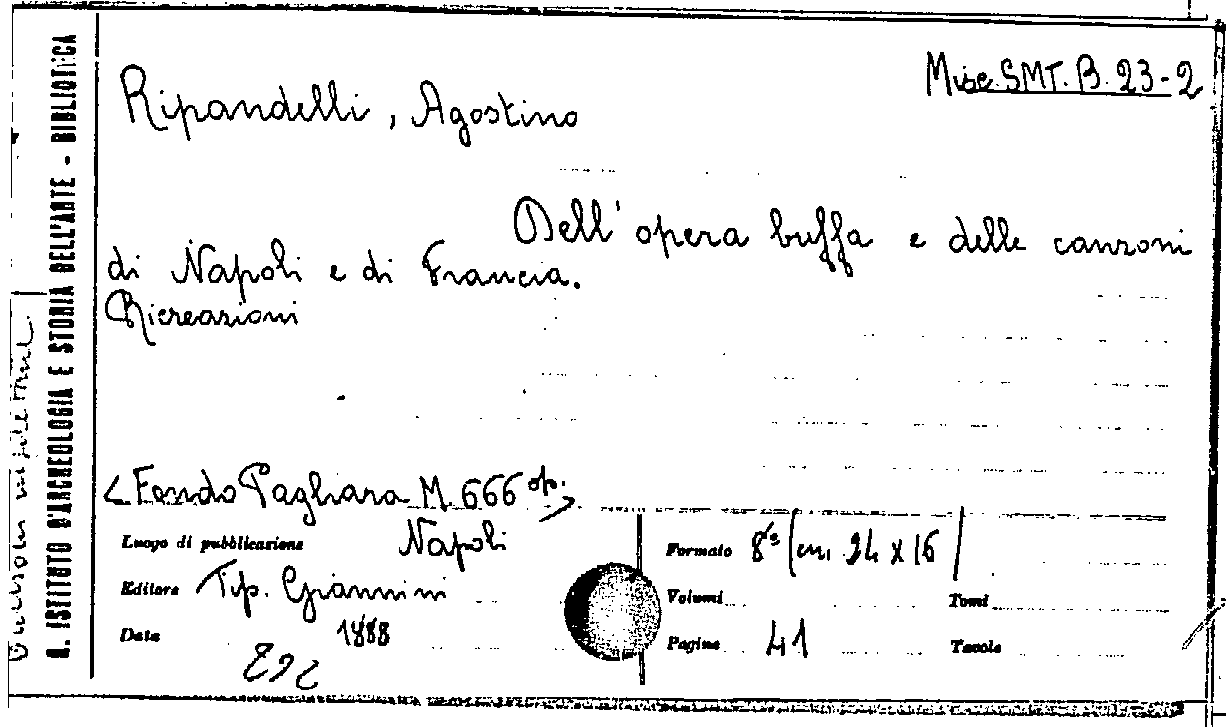 Misc. SMT. B. 23-2
Ripandelli, Agostino
Dell'opera buffa e delle canzoni
di Napoli e di Francia.
Ricreazioni
<Fondo Pagliara M. 666 op.>
Luogo di pubblicazione Napoli
Editore Tip. Giannini
Data 1888
Formato 8° (cm. 24 x 16)
Volumi Tomi
Pagine 41 Tavole
R. ISTITUTO D'ARCHEOLOGIA E STORIA DELL'ARTE - BIBLIOTECA